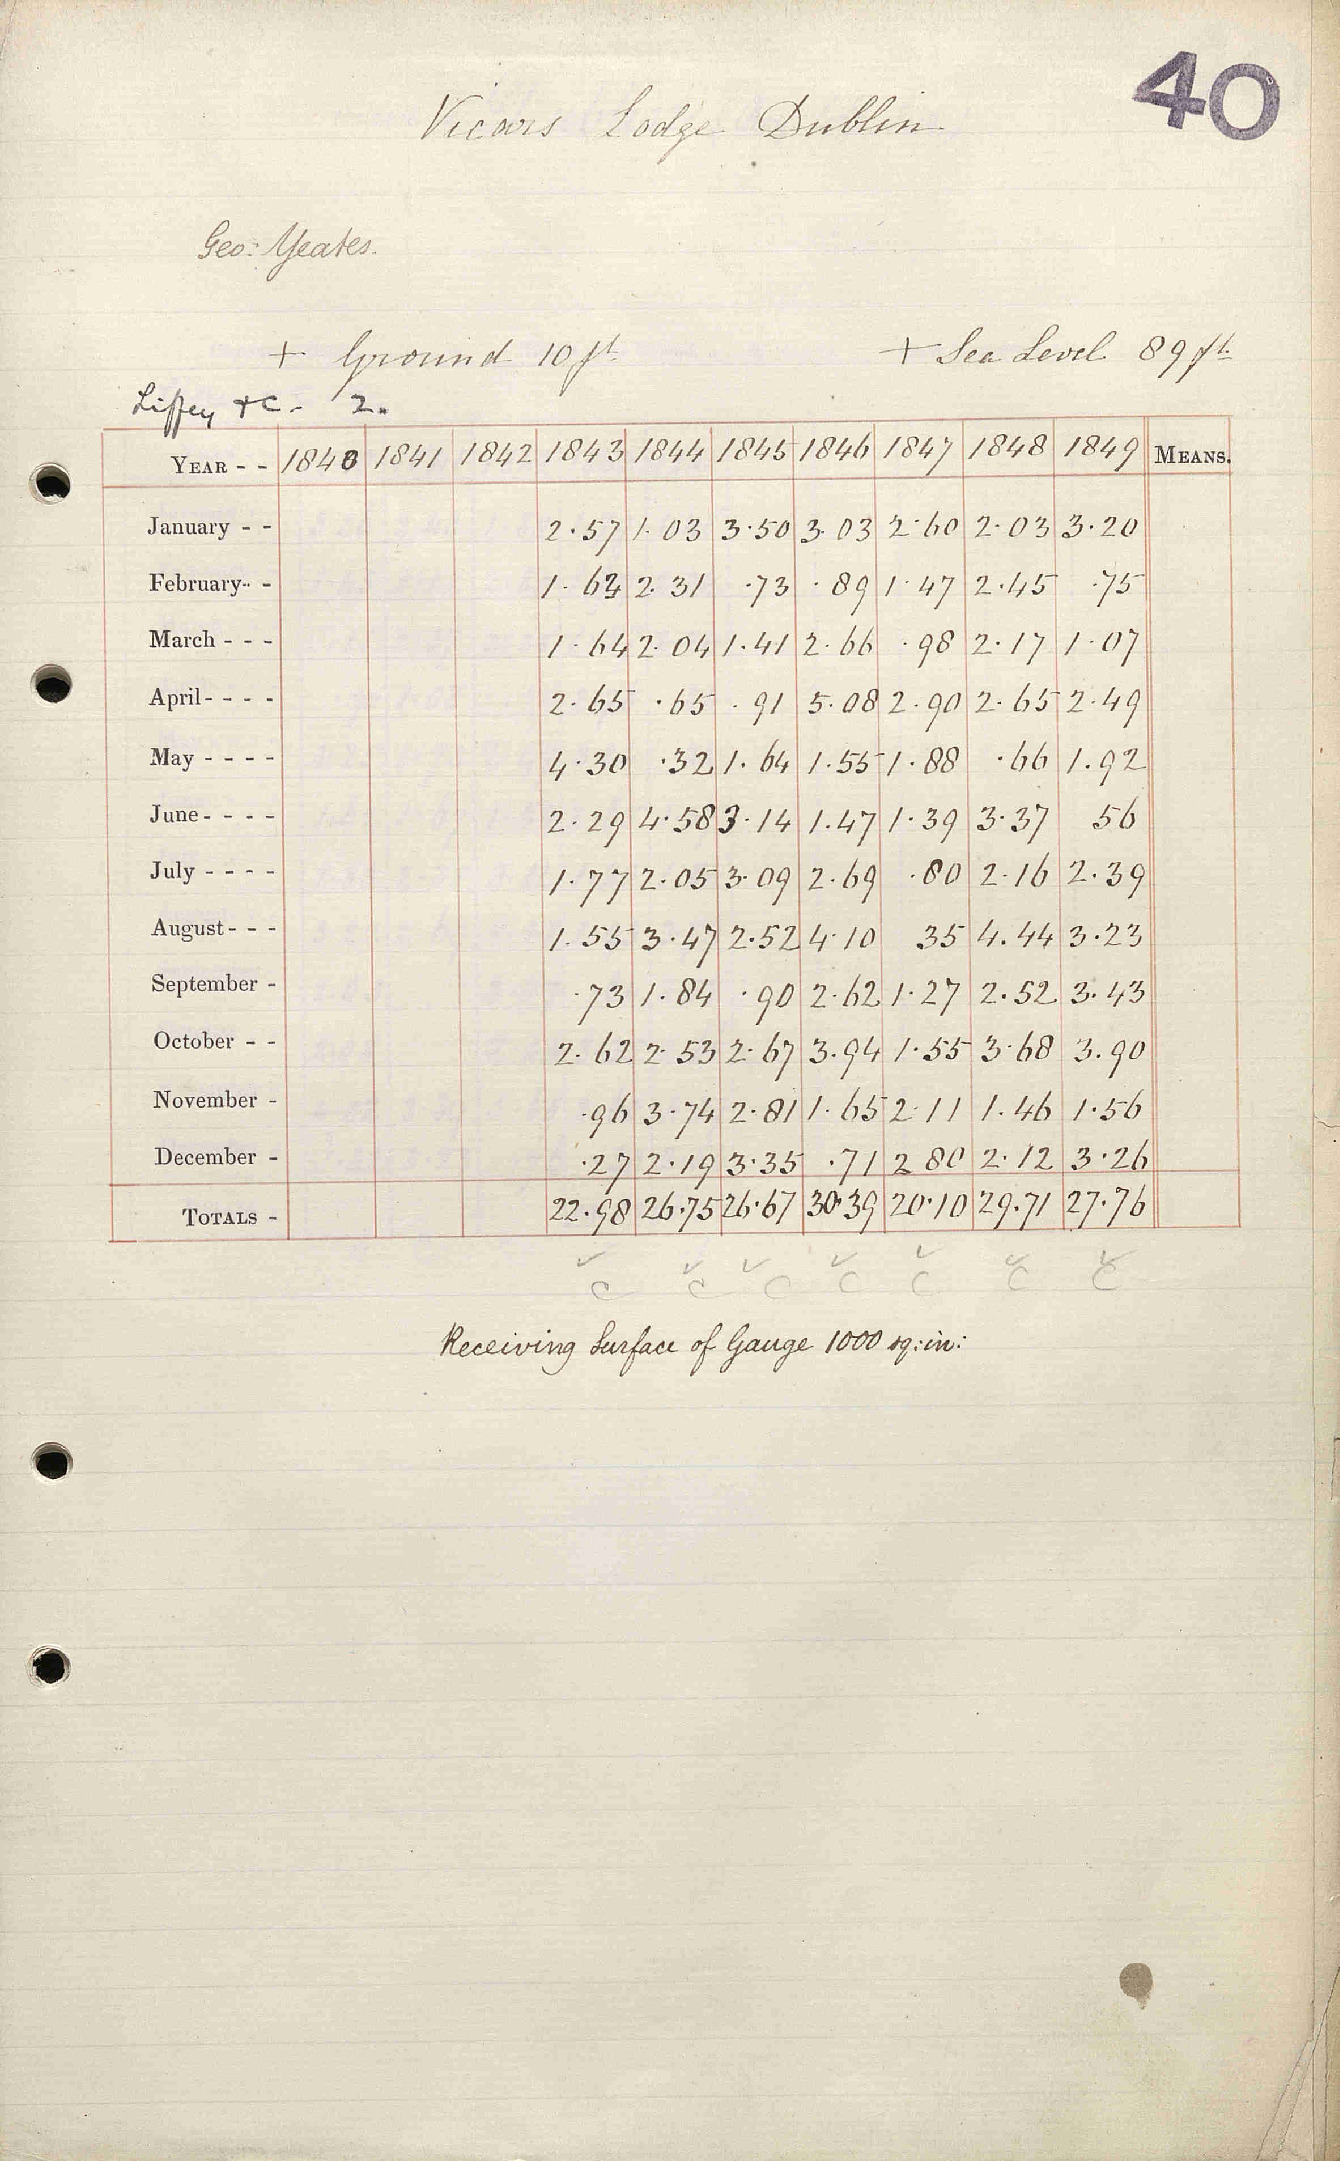 40
Vicars Lodge Dublin
Geo: Yeates.
+ Ground 10 ft + Sea Level 89 ft
Liffey &C - 2.
YEAR - - 1840 1841 1842 1843 1844 1845 1846 1847 1848 1849 MEANS.
January - - 2.57 1.03 3.50 3.03 2.60 2.03 3.20
February - - 1.63 2.31 .73 .89 1.47 2.45 .75
March - - - 1.64 2.04 1.41 2.66 .98 2.17 1.07
April - - - - 2.65 .65 .91 5.08 2.90 2.65 2.49
May - - - - 4.30 .32 1.64 1.55 1.88 .66 1.92
June - - - - 2.29 4.58 3.14 1.47 1.39 3.37 56
July - - - - 1.77 2.05 3.09 2.69 .80 2.16 2.39
August - - - 1.55 3.47 2.52 4.10 35 4.44 3.23
September - .73 1.84 .90 2.62 1.27 2.52 3.43
October - - 2.62 2.53 2.67 3.94 1.55 3.68 3.90
November - .96 3.74 2.81 1.65 2.11 1.46 1.56
December - .27 2.19 3.35 .71 2 80 2.12 3.26
TOTALS - 22.98 26.75 26.67 30.39 20.10 29.71 27.76
C C C C C C C
Receiving Surface of Gauge 1000 sq: in: